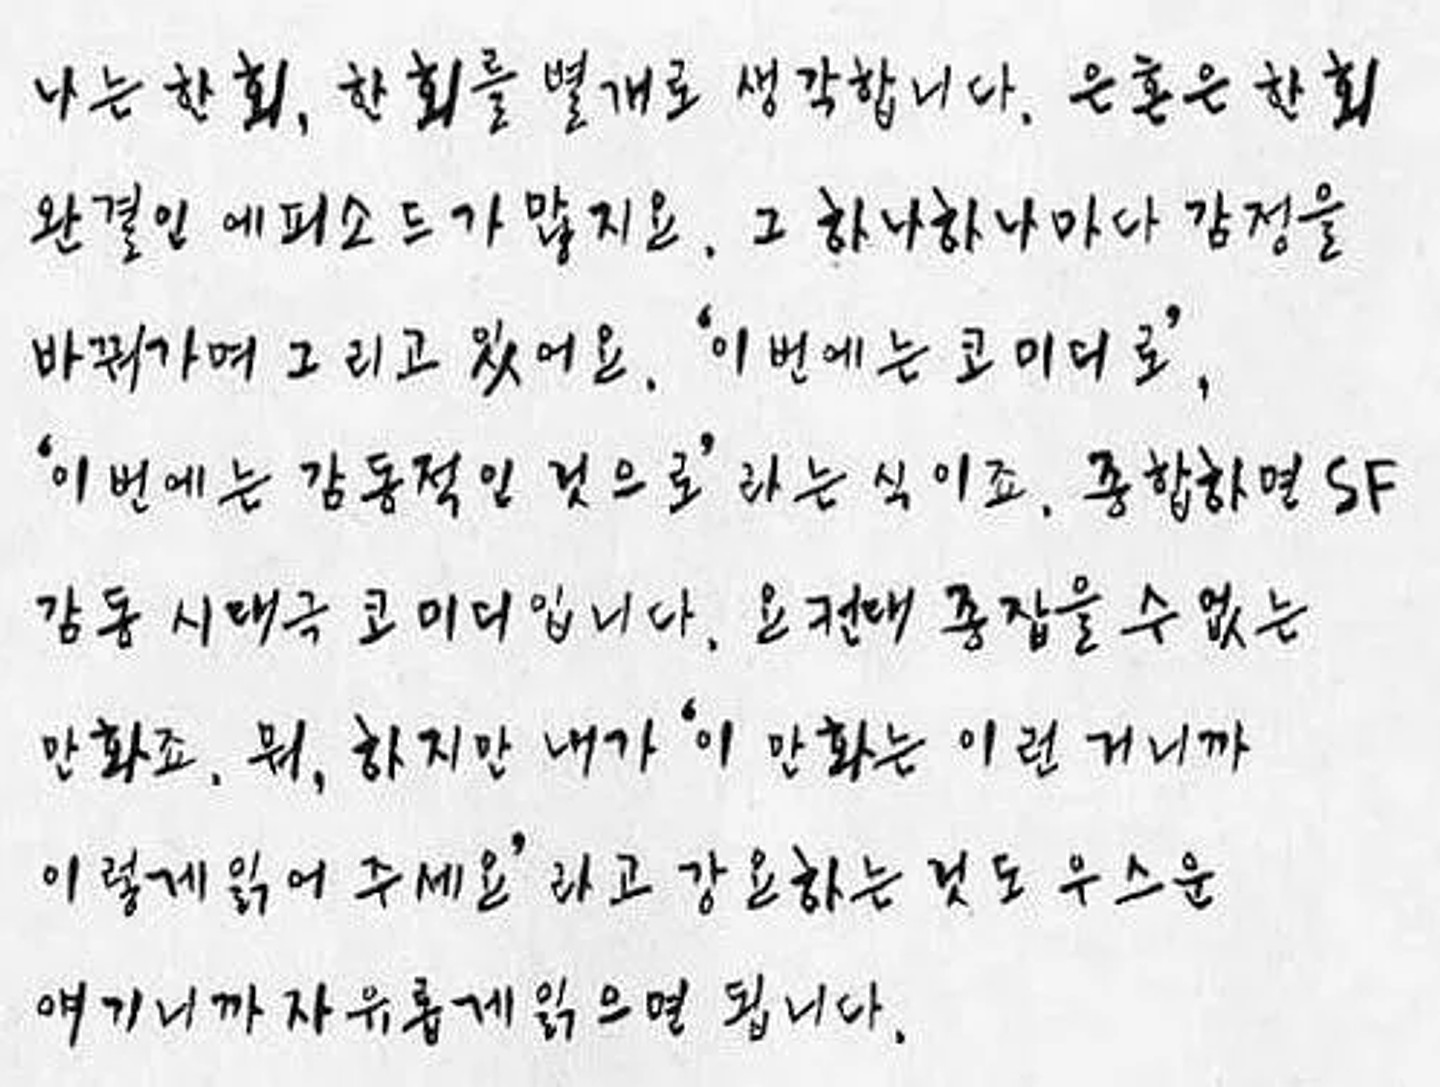 나는 한 회, 한 회를 별개로 생각합니다. 은혼은 한 회
완결인 에피소드가 많지요. 그 하나하나마다 감정을
바꿔가며 그리고 있어요. ‘이번에는 코미디로’,
‘이번에는 감동적인 것으로’ 라는 식이죠. 종합하면 SF
감동 시대극 코미디입니다. 요컨대 종잡을 수 없는
만화죠. 뭐, 하지만 내가 ‘이 만화는 이런 거니까
이렇게 읽어 주세요’ 라고 강요하는 것도 우스운
얘기니까 자유롭게 읽으면 됩니다.